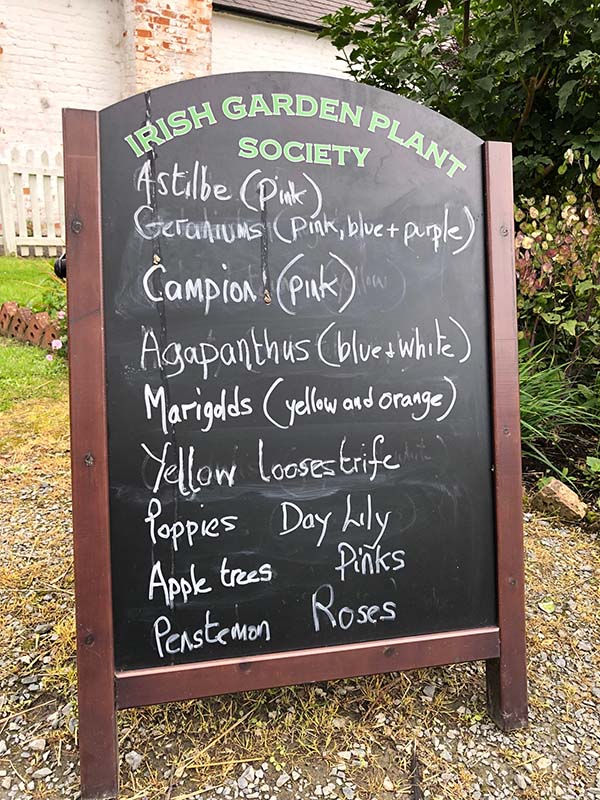 IRISH GARDEN PLANT
SOCIETY
Astilbe (pink)
Geraniums (pink, blue + purple)
Campion (pink)
Agapanthus (blue + white)
Marigolds (yellow and orange)
Yellow loosestrife
Poppies Day Lily
Apple trees Pinks
Penstemon Roses